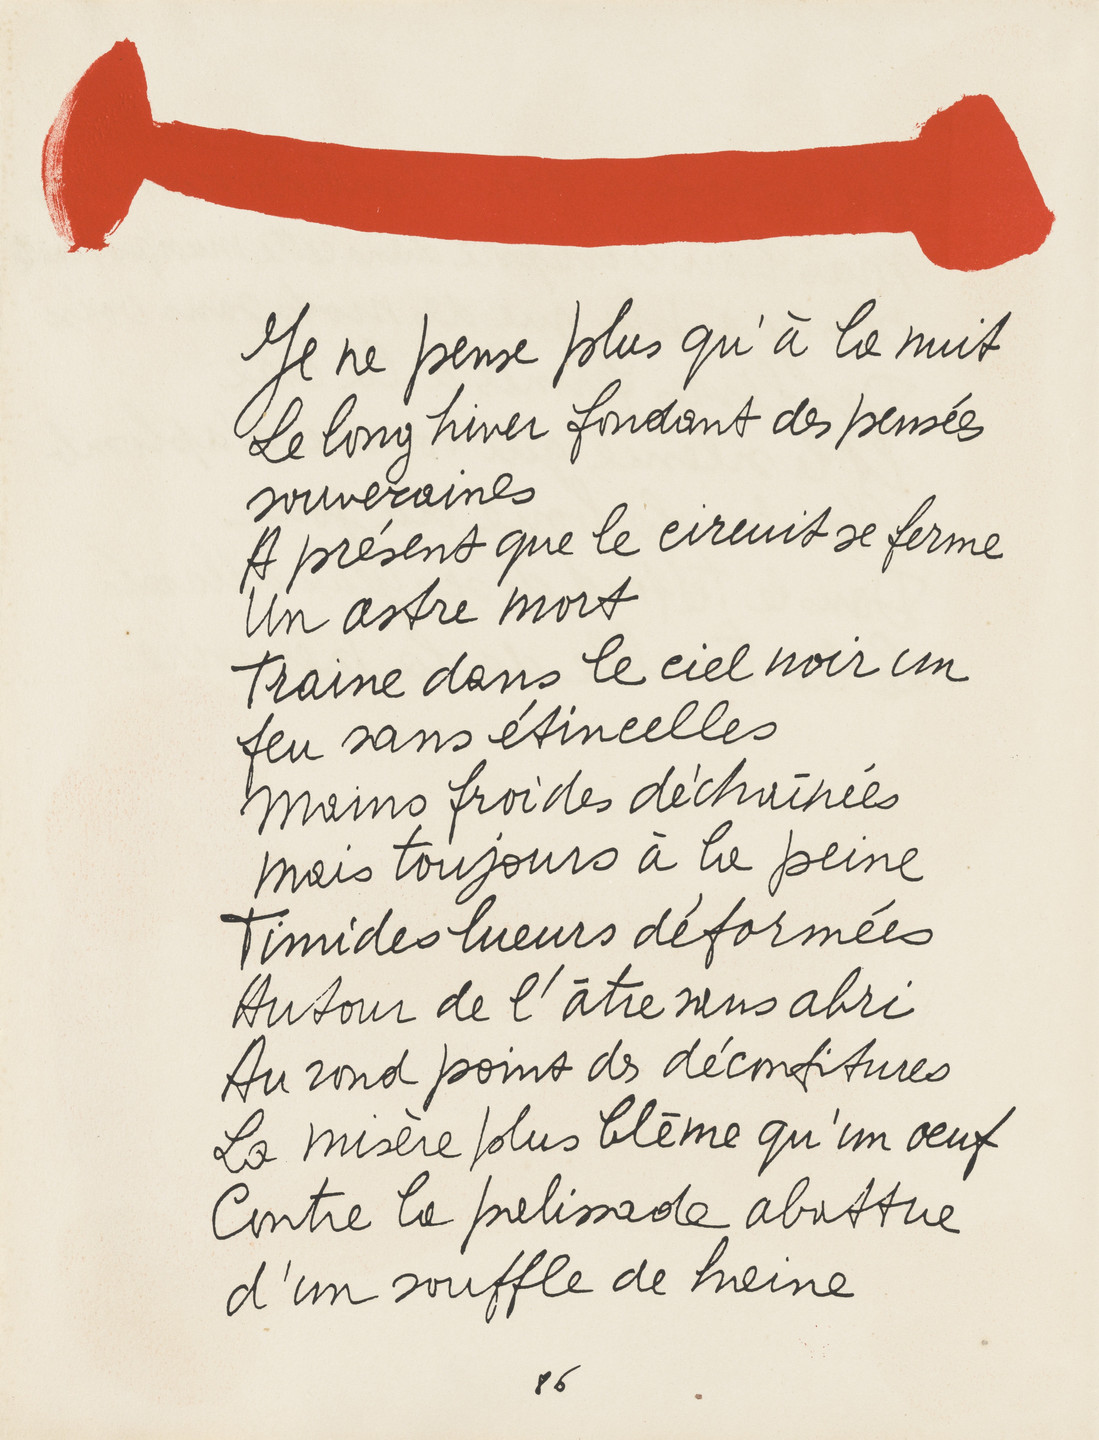 Je ne pense plus qu'à la nuit
Le long hiver fondant des pensées
souveraines
A présent que le circuit se ferme
Un astre mort
Traine dans le ciel noir un
feu sans étincelles
Mains froides déchaînées
Mais toujours à la peine
Timides lueurs déformées
Autour de l'âtre sans abri
Au rond point des déconfitures
La misère plus blême qu'un oeuf
Contre la palissade abattue
d'un souffle de haine
86